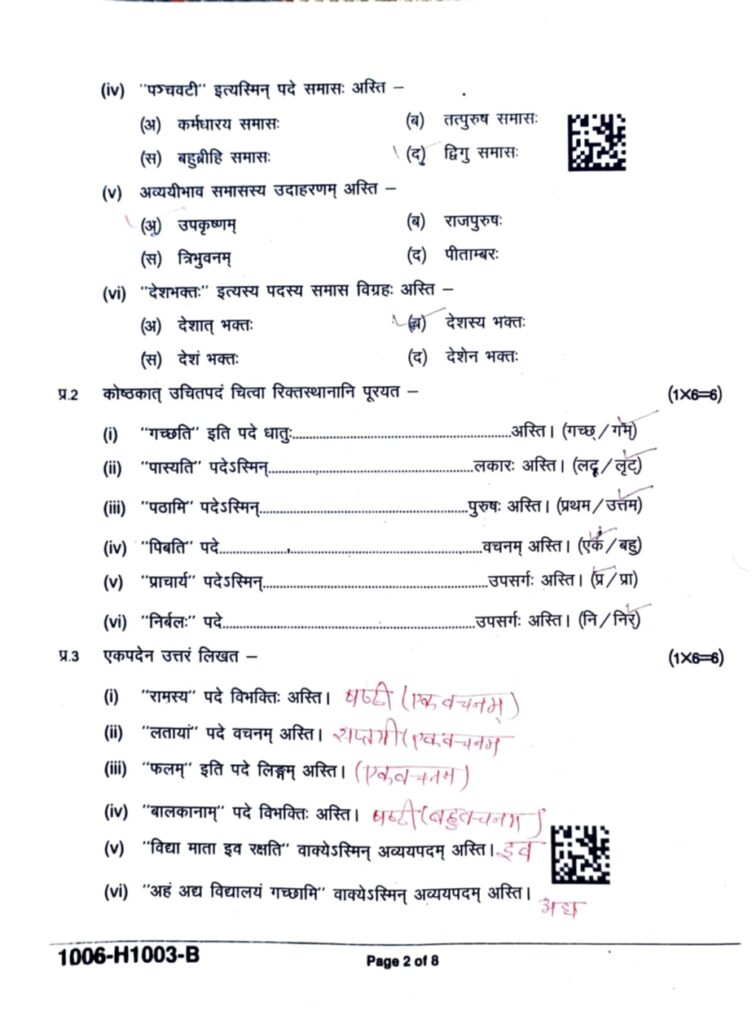 (iv) "पञ्चवटी" इत्यस्मिन् पदे समासः अस्ति –
(अ) कर्मधारय समासः (ब) तत्पुरुष समासः
(स) बहुब्रीहि समासः (द) द्विगु समासः
(v) अव्ययीभाव समासस्य उदाहरणम् अस्ति –
(अ) उपकृष्णम् (ब) राजपुरुषः
(स) त्रिभुवनम् (द) पीताम्बरः
(vi) "देशभक्तः" इत्यस्य पदस्य समास विग्रहः अस्ति –
(अ) देशात् भक्तः (ब) देशस्य भक्तः
(स) देशं भक्तः (द) देशेन भक्तः
प्र.2 कोष्ठकात् उचितपदं चित्वा रिक्तस्थानानि पूरयत – (1×6=6)
(i) "गच्छति" इति पदे धातुः..........अस्ति। (गच्छ/गम्)
(ii) "पास्यति" पदेऽस्मिन्..........लकारः अस्ति। (लट्/लृट्)
(iii) "पठामि" पदेऽस्मिन्..........पुरुषः अस्ति। (प्रथम/उत्तम)
(iv) "पिबति" पदे..........वचनम् अस्ति। (एकं/बहु)
(v) "प्राचार्य" पदेऽस्मिन्..........उपसर्गः अस्ति। (प्र/प्रा)
(vi) "निर्बलः" पदे..........उपसर्गः अस्ति। (नि/निर्)
प्र.3 एकपदेन उत्तरं लिखत – (1×6=6)
(i) "रामस्य" पदे विभक्तिः अस्ति। षष्ठी (एकवचनम्)
(ii) "लतायां" पदे वचनम् अस्ति। सप्तमी (एकवचनम
(iii) "फलम्" इति पदे लिङ्गम् अस्ति। (एकवचनम)
(iv) "बालकानाम्" पदे विभक्तिः अस्ति। षष्ठी (बहुवचनम)
(v) "विद्या माता इव रक्षति" वाक्येऽस्मिन् अव्ययपदम् अस्ति। इव
(vi) "अहं अद्य विद्यालयं गच्छामि" वाक्येऽस्मिन् अव्ययपदम् अस्ति। अद्य
1006-H1003-B Page 2 of 8